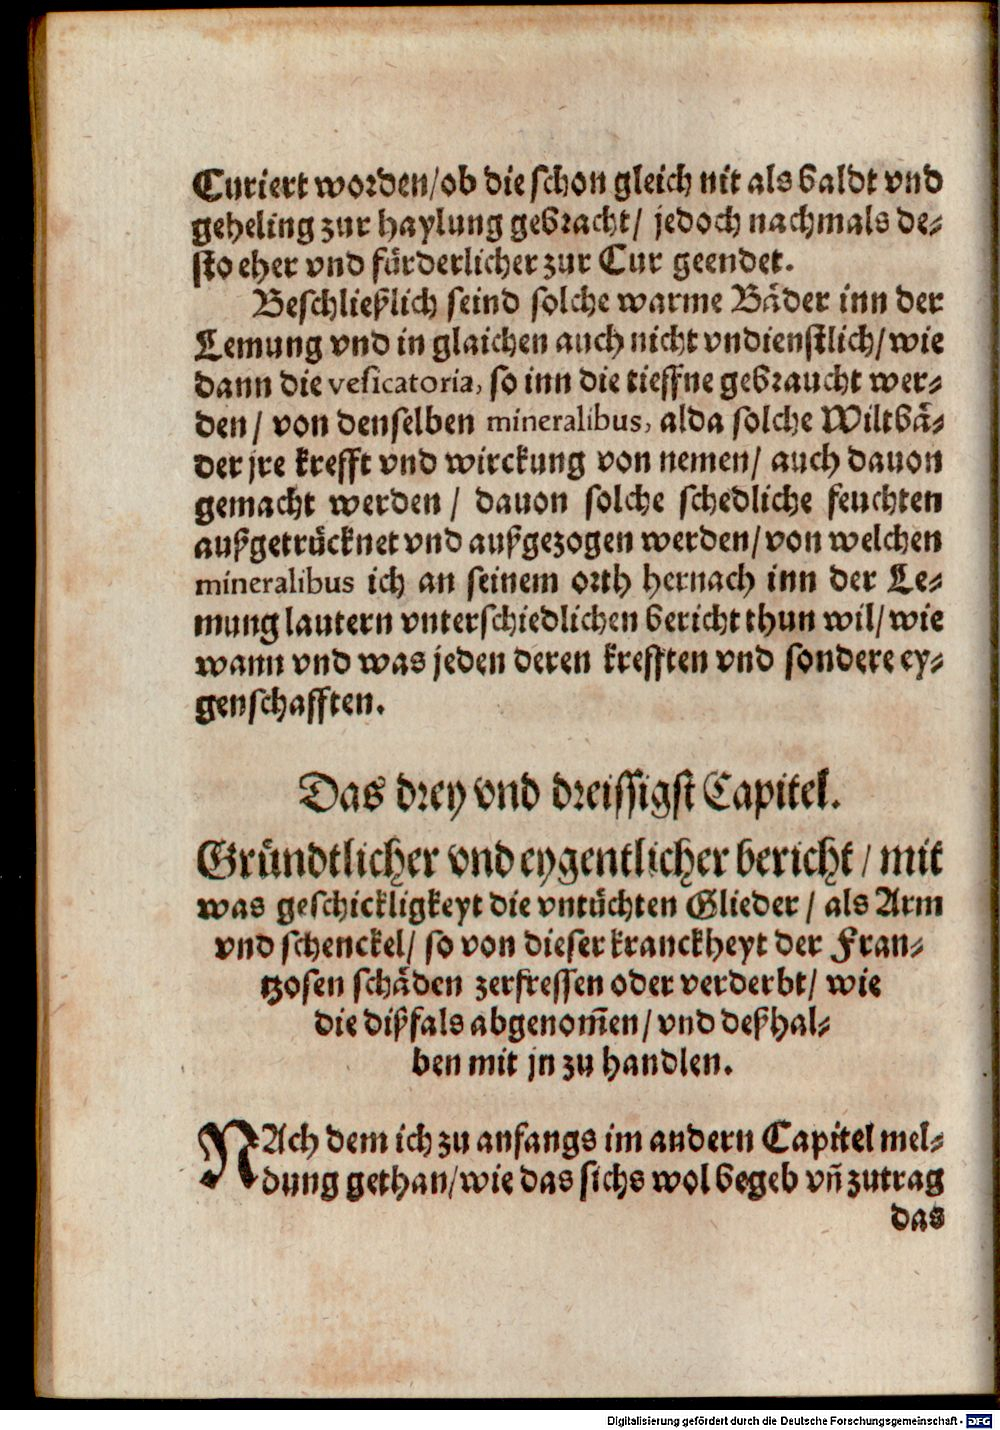 Curiert worden/ob die schon gleich nit als baldt vnd
geheling zur haylung gebracht/ jedoch nachmals de-
sto eher vnd fürderlicher zur Cur geendet.
Beschließlich seind solche warme Bäder inn der
Lemung vnd in glaichen auch nicht vndienstlich/wie
dann die vesicatoria, so inn die tieffne gebraucht wer-
den/ von denselben mineralibus, alda solche Wiltbä-
der jre krefft vnd wirckung von nemen/ auch dauon
gemacht werden/ dauon solche schedliche feuchten
außgetrücknet vnd außgezogen werden/von welchen
mineralibus ich an seinem orth hernach inn der Le-
mung lautern vnterschiedlichen bericht thun wil/wie
wann vnd was jeden deren krefften vnd sondere ey-
genschafften.
Das drey vnd dreissigst Capitel.
Gründtlicher vnd eygentlicher bericht/ mit
was geschickligkeyt die vntüchten Glieder/ als Arm
vnd schenckel/ so von dieser kranckheyt der Fran-
tzosen schäden zerfressen oder verderbt/ wie
die dißfals abgenom̃en/ vnd deßhal-
ben mit jn zu handlen.
NAch dem ich zu anfangs im andern Capitel mel-
dung gethan/wie das sichs wol begeb vñ zutrag
das
Digitalisierung gefördert durch die Deutsche Forschungsgemeinschaft - DFG